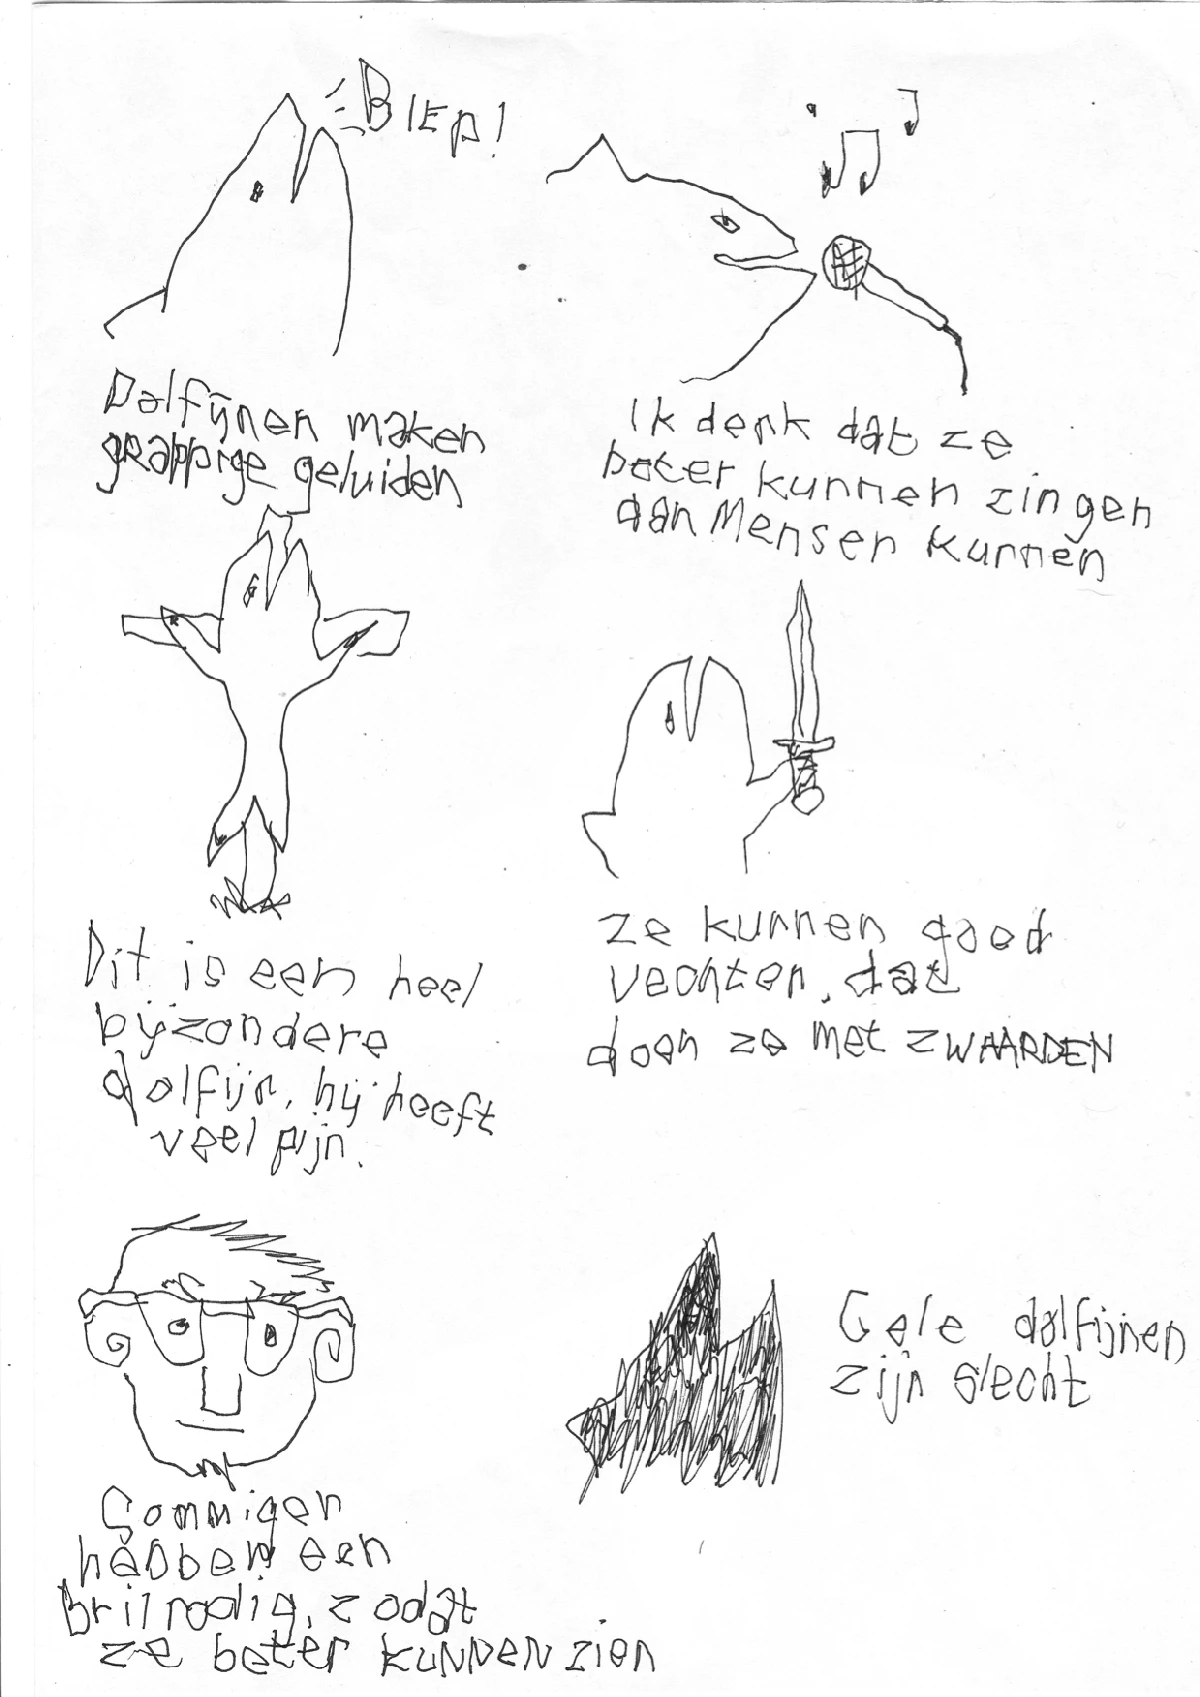 BIEP!
Dolfijnen maken
grappige geluiden
Ik denk dat ze
beter kunnen zingen
dan Mensen kunnen
Dit is een heel
bijzondere
dolfijn, hij heeft
veel pijn.
ze kunnen goed
vechten, dat
doen ze met ZWAARDEN
Sommigen
hebben een
Bril nodig, zodat
ze beter KUNNEN zien
Gele dolfijnen
zijn slecht